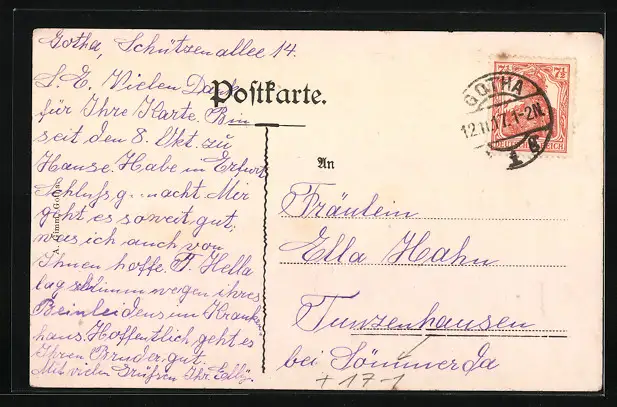 Gotha, Schützenallee 14.
L. E. Vielen Dank
für Ihre Karte. Bin
seit den 8. Okt. zu
Hause. Habe in Erfurt
Schluss gemacht. Mir
geht es soweit gut,
was ich auch von
Ihnen hoffe. F. Hella
lag schlimm wegen ihres
Beinleidens im Kranken
haus. Hoffentlich geht es
Ihren Bruder gut.
Mit vielen Grüßen Ihr
Postkarte.
An
Fräulein
Ella Hahn
Tunzenhausen
bei Sömmerda
+ 17-1
GOTHA
12.11.17.1-2N.
7½ 7½
DEUTSCHES REICH